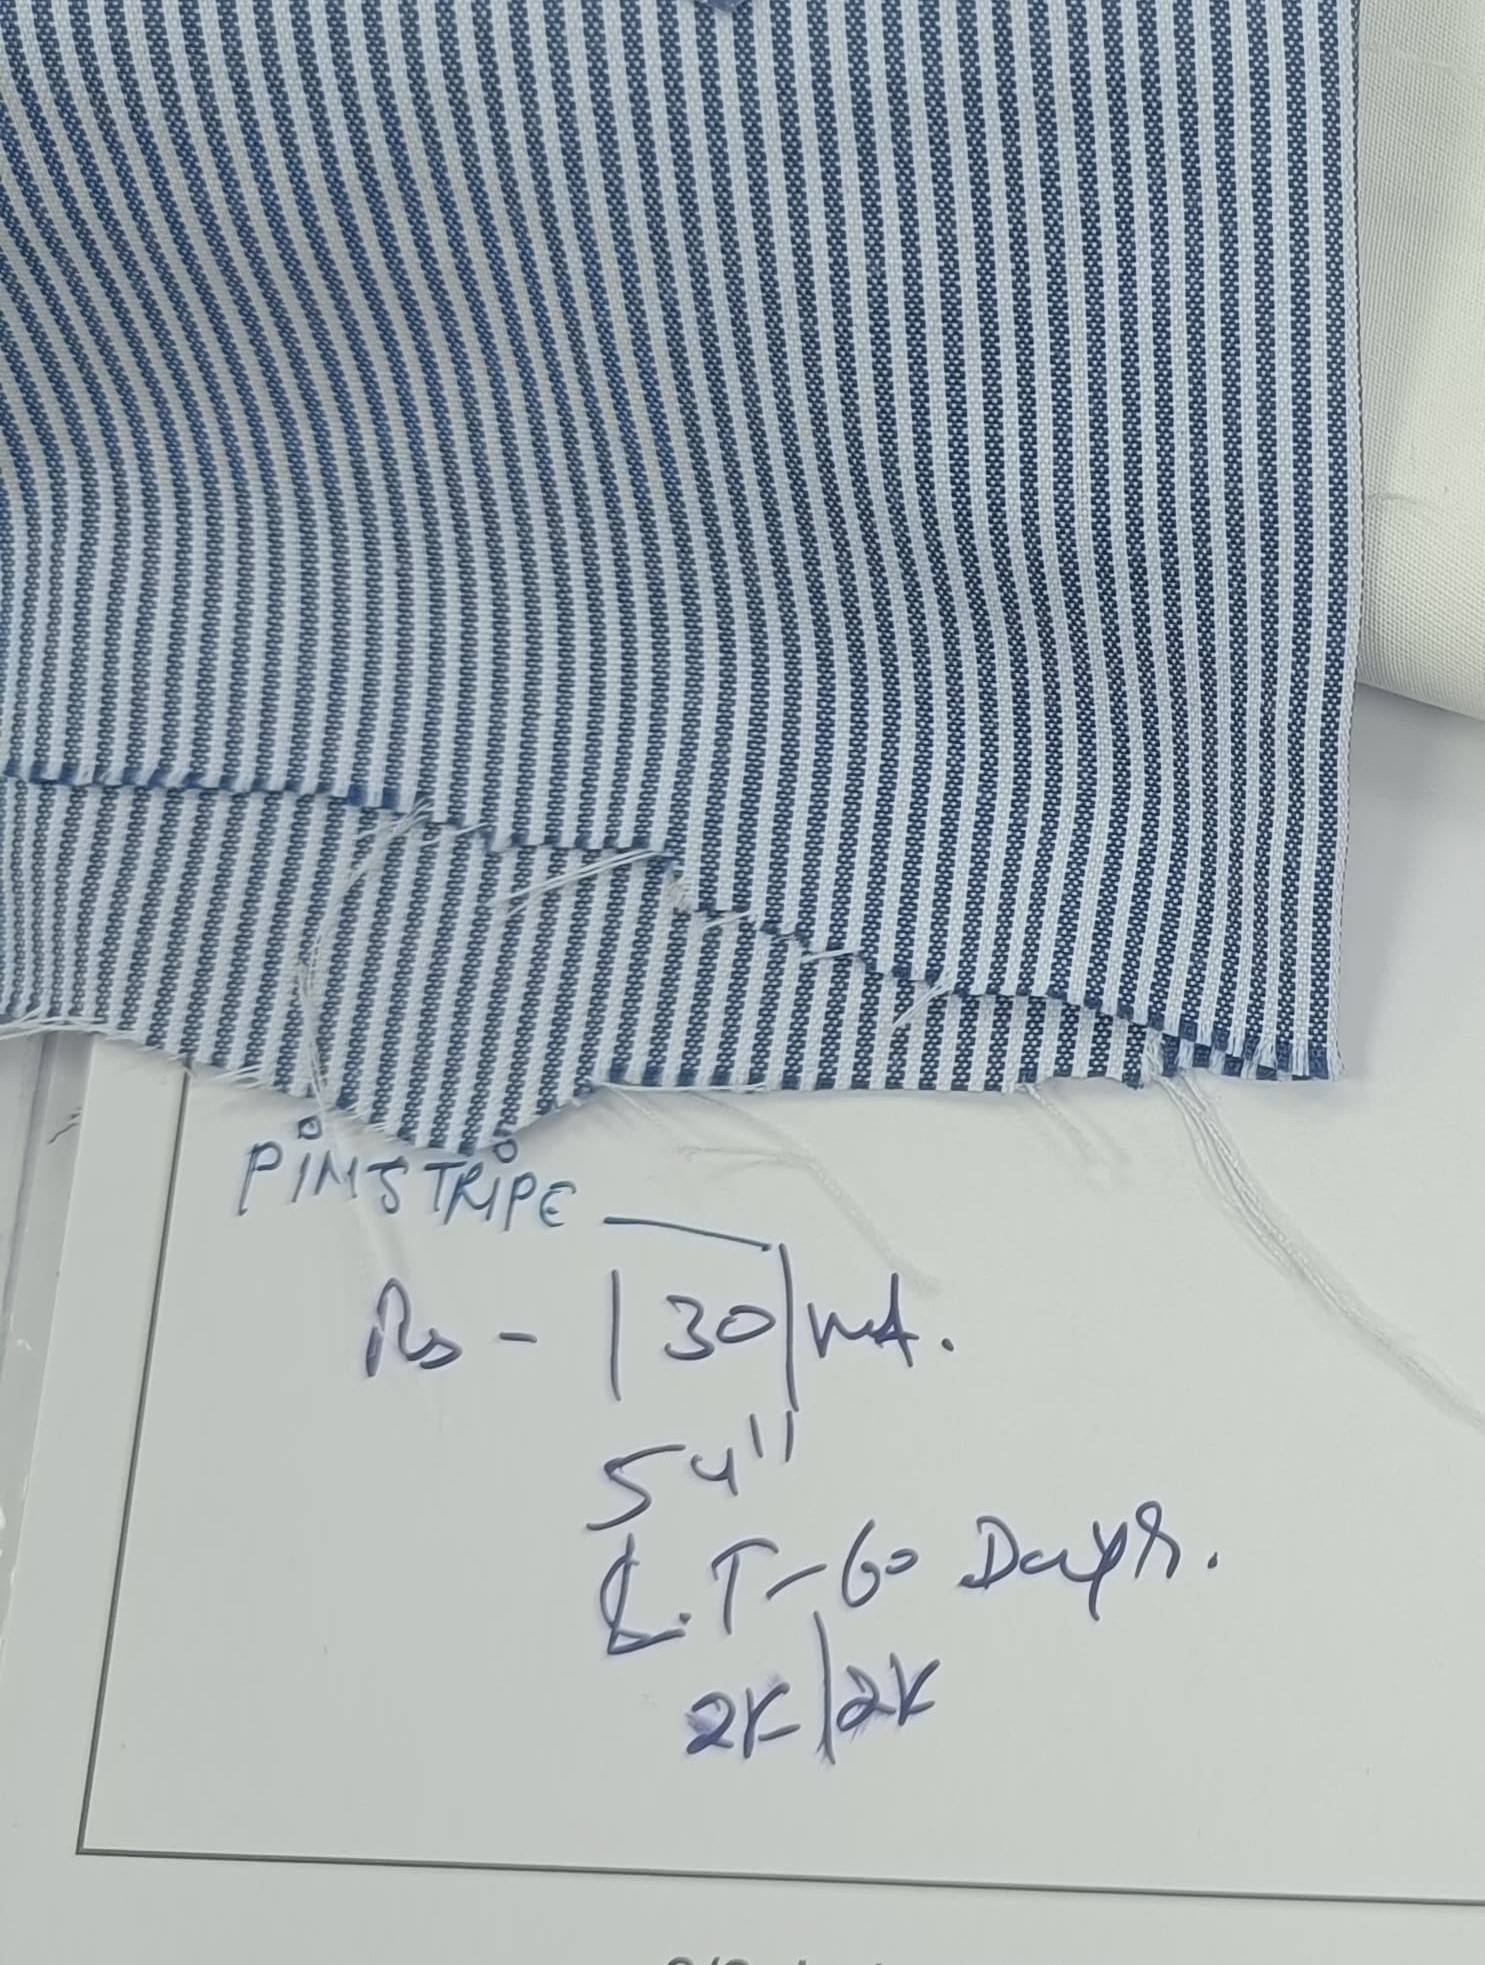 PINSTRIPE
Rs - 130/mt.
54"
L.T - 60 Days.
2K/2K